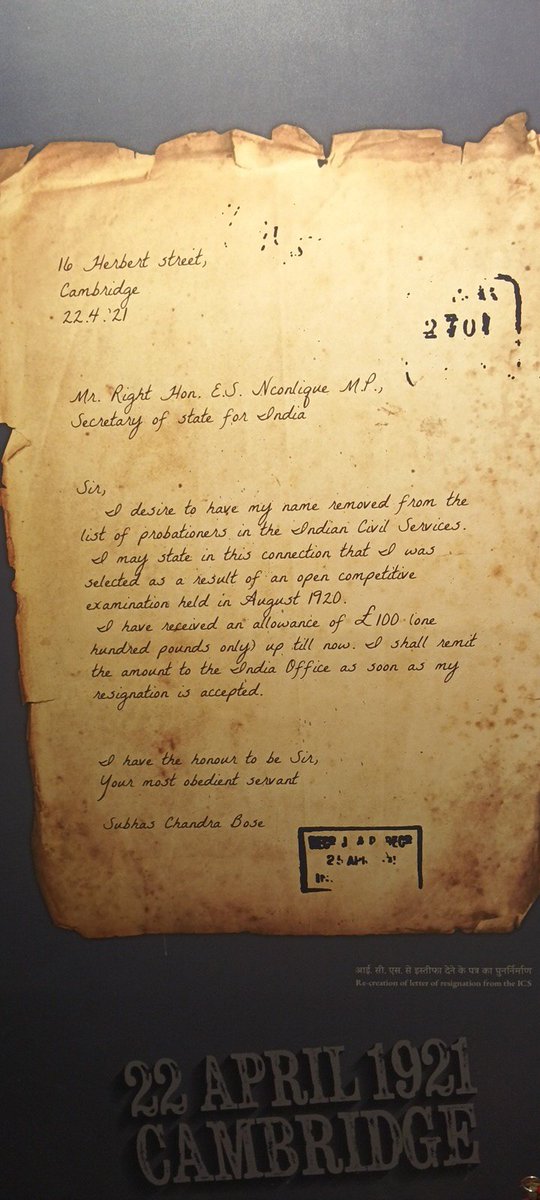 16 Herbert street,
Cambridge
22.4.'21
2701
Mr. Right Hon. E.S. Nconlique M.P.,
Secretary of state for India
Sir,
I desire to have my name removed from the
list of probationers in the Indian Civil Services.
I may state in this connection that I was
selected as a result of an open competitive
examination held in August 1920.
I have received an allowance of £100 (one
hundred pounds only) up till now. I shall remit
the amount to the India Office as soon as my
resignation is accepted.
I have the honour to be Sir,
Your most obedient servant
Subhas Chandra Bose
आई. सी. एस. से इस्तीफा देने के पत्र का पुनर्निर्माण
Re-creation of letter of resignation from the ICS
22 APRIL 1921
CAMBRIDGE